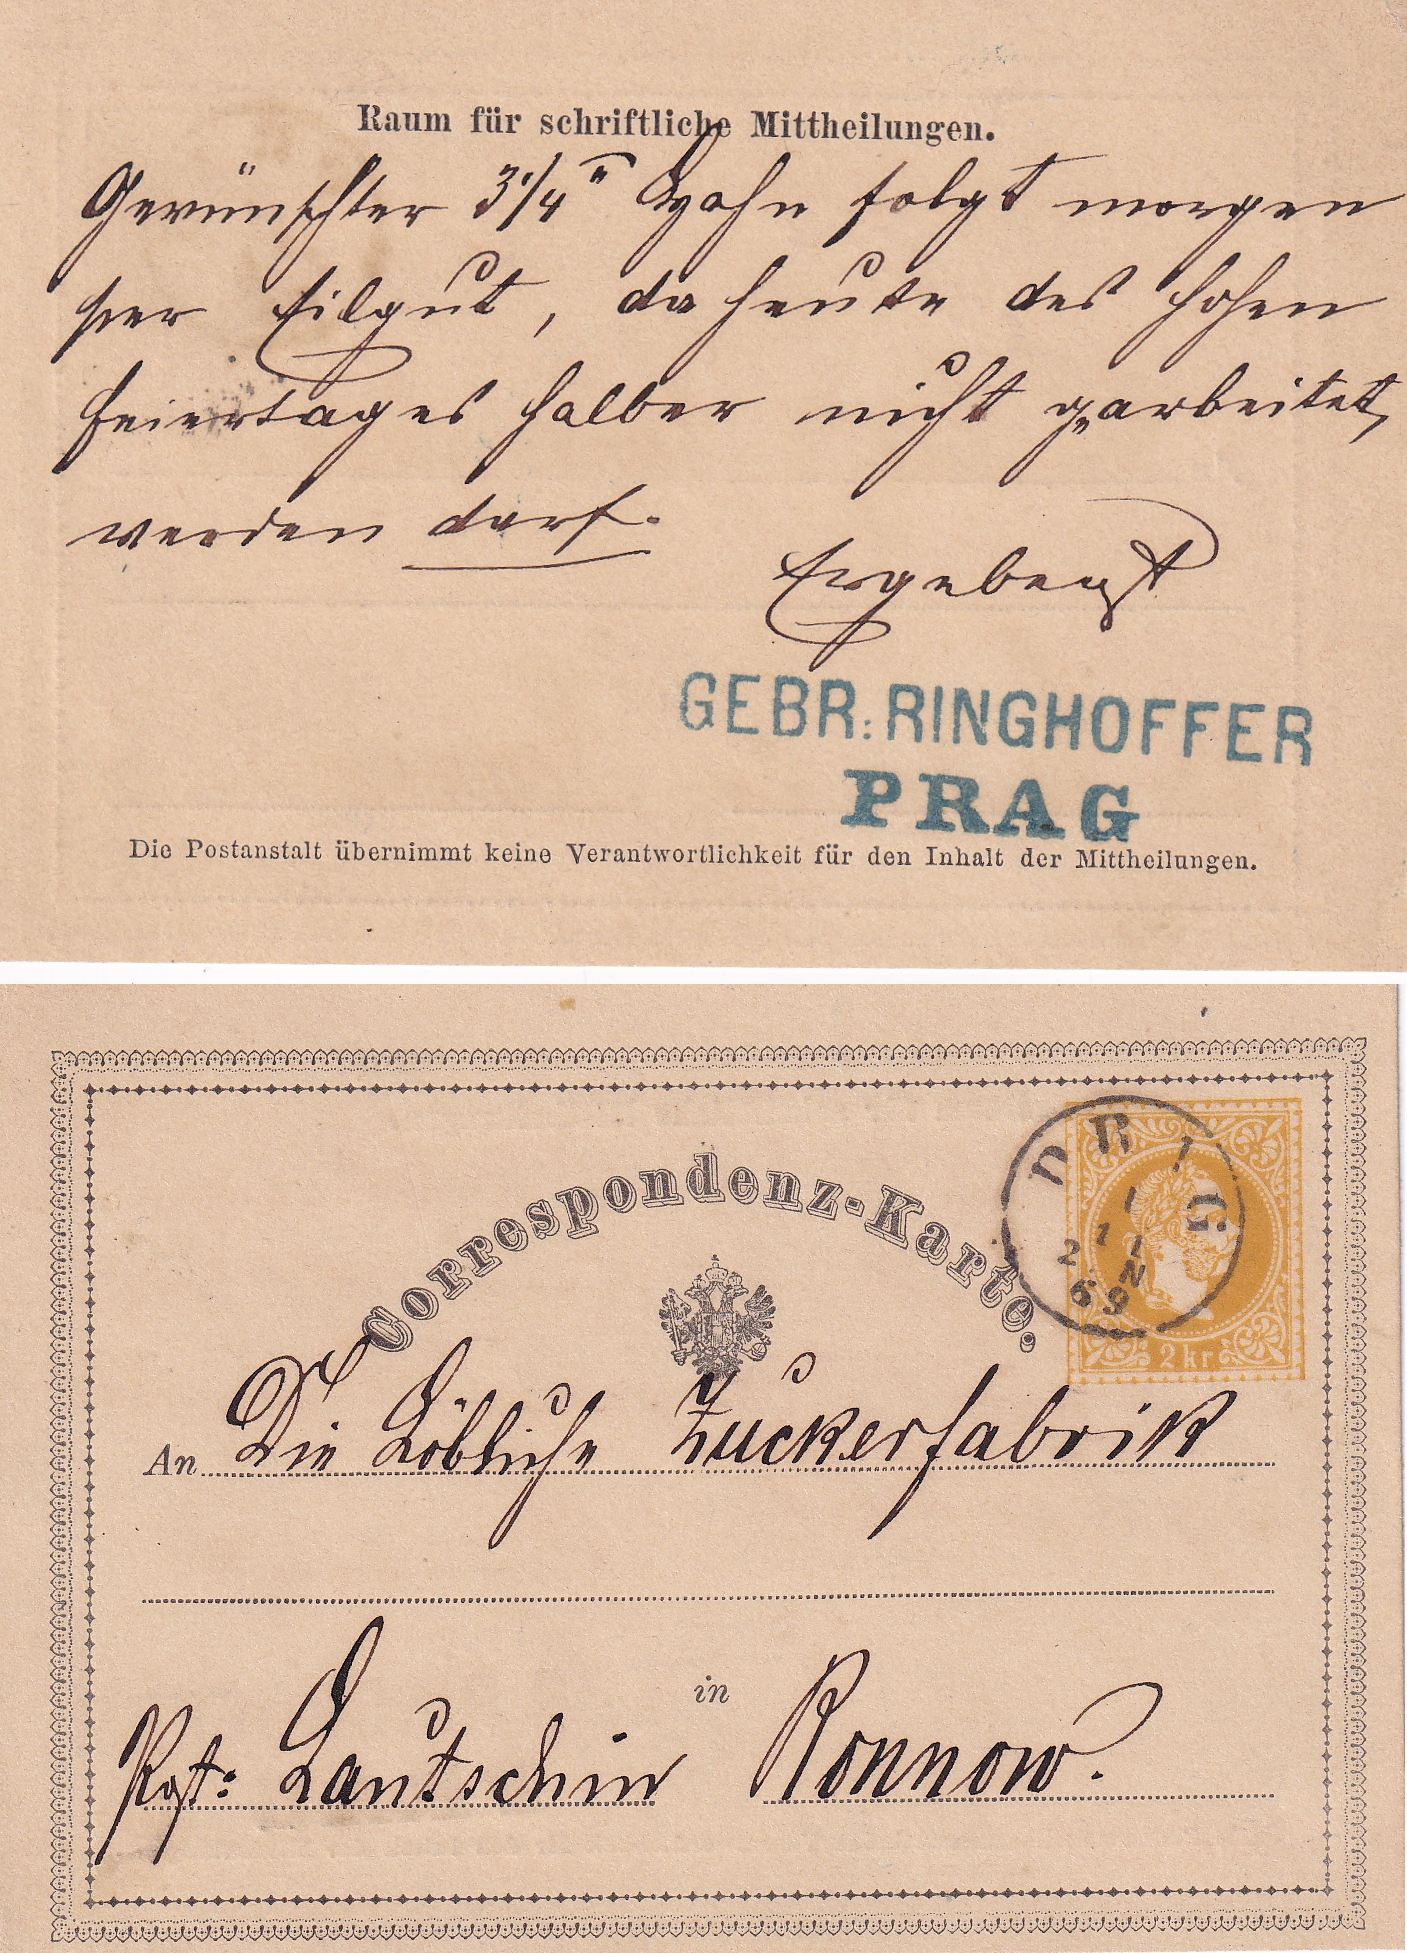 Raum für schriftliche Mittheilungen.
Gewünschter 3 1/4" Hahn folgt morgen
per Eilgut, da heute des hohen
Feiertages halber nicht gearbeitet,
werden darf.
Ergebenst
GEBR: RINGHOFFER
PRAG
Die Postanstalt übernimmt keine Verantwortlichkeit für den Inhalt der Mittheilungen.
Correspondenz-Karte.
PRAG
1
1 11
2 N
69
2 kr
An Die Löbliche Zuckerfabrik
in
Pst: Lautschin Ronnow.